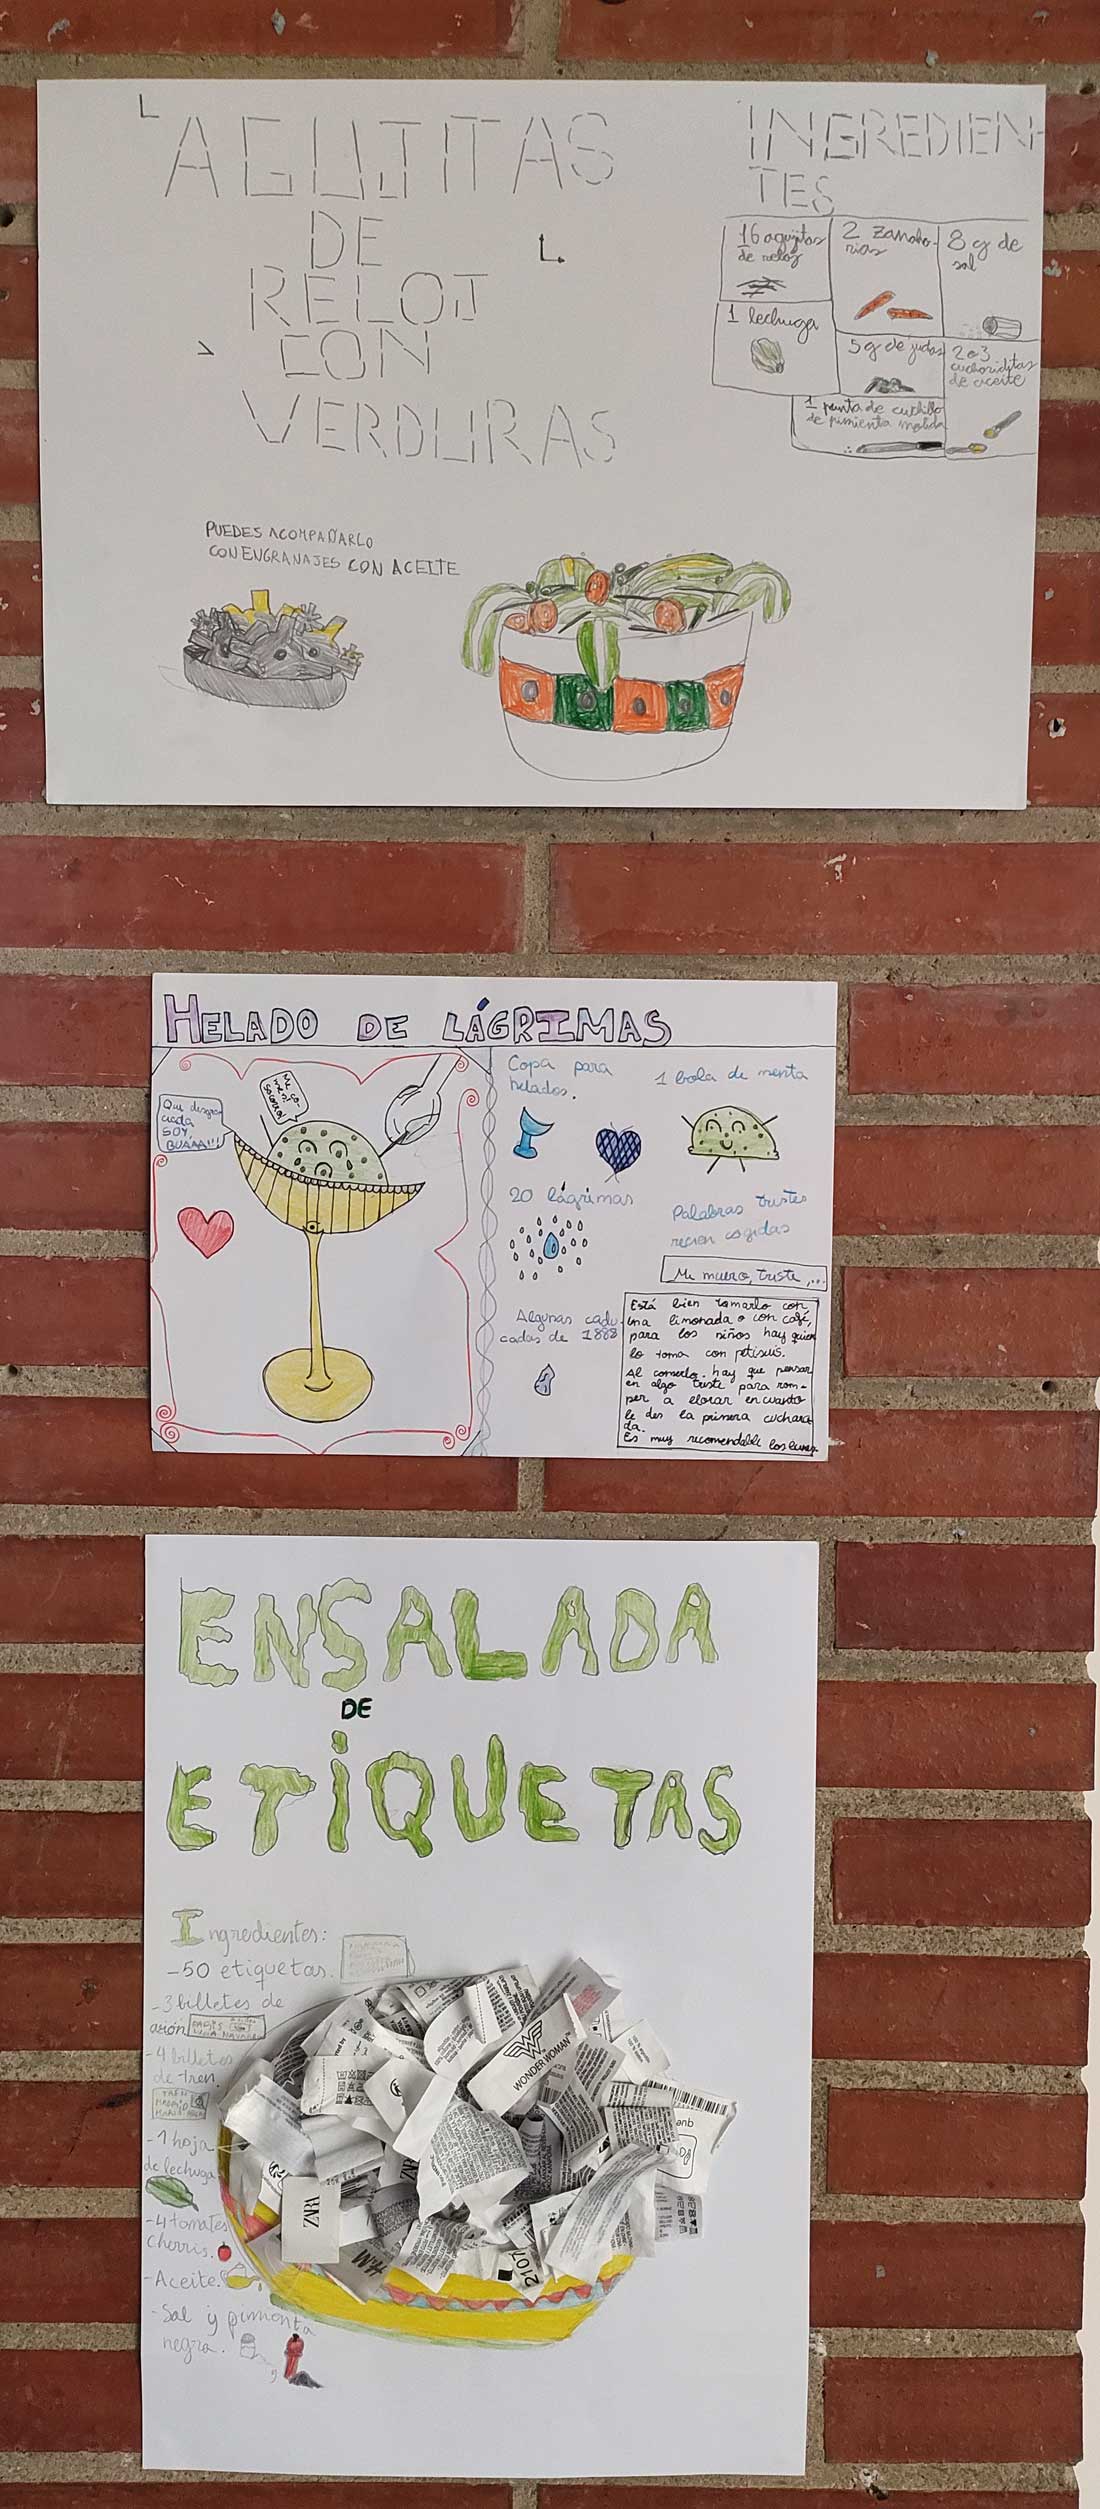 AGUJITAS
DE
RELOJ
CON
VERDURAS
INGREDIEN-
TES
16 agujitas
de reloj
2 zanaho-
rias
8 g de
sal
1 lechuga
5 g de judas
2 o 3
cuchariditas
de aceite
1 punta de cuchillo
de pimienta molida
PUEDES ACOMPAÑARLO
CON ENGRANAJES CON ACEITE
HELADO DE LÁGRIMAS
Que desgra
ciada
SOY,
BUAAA!!!
Me co-
men!
Socorro!
Copa para
helados.
1 bola de menta
20 lágrimas
Palabras tristes
recien cogidas
Me muero, triste,...
Algunas cadu-
cadas de 1888
Está bien tomarlo con
una limonada o con café,
para los niños hay quien
lo toma con petisuis.
Al comerlo hay que pensar
en algo triste para rom-
per a llorar en cuanto
le des la primera cuchara
da.
Es muy recomendable los lunes.
ENSALADA
DE
ETIQUETAS
Ingredientes:
-50 etiquetas.
-3 billetes de
avión
PARIS
LUNA NAVARRO
-4 billetes
de tren.
TREN
MADRID
-1 hoja
de lechuga
-4 tomates
Cherris.
-Aceite.
-Sal y pimienta
negra.
WONDER WOMAN™
ZARA
ZAR
H&M
2107